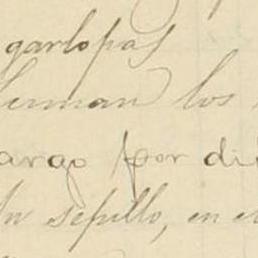 garlopas
herman los
argo por di
Un sepillo, en e